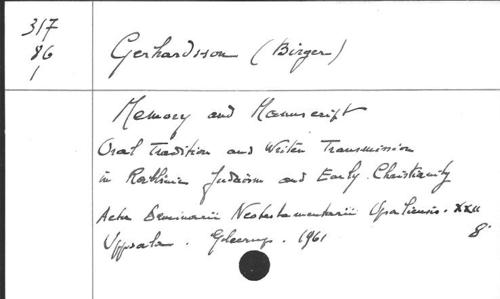 317
86
1
Gerhardsson (Birger)
Memory and Manuscript
Oral Tradition and Written Transmission
in Rabbinic Judaism and Early Christianity
Acta Seminarii Neotestamentarii Upsaliensis. XXII
Uppsala. Gleerup. 1961
8°